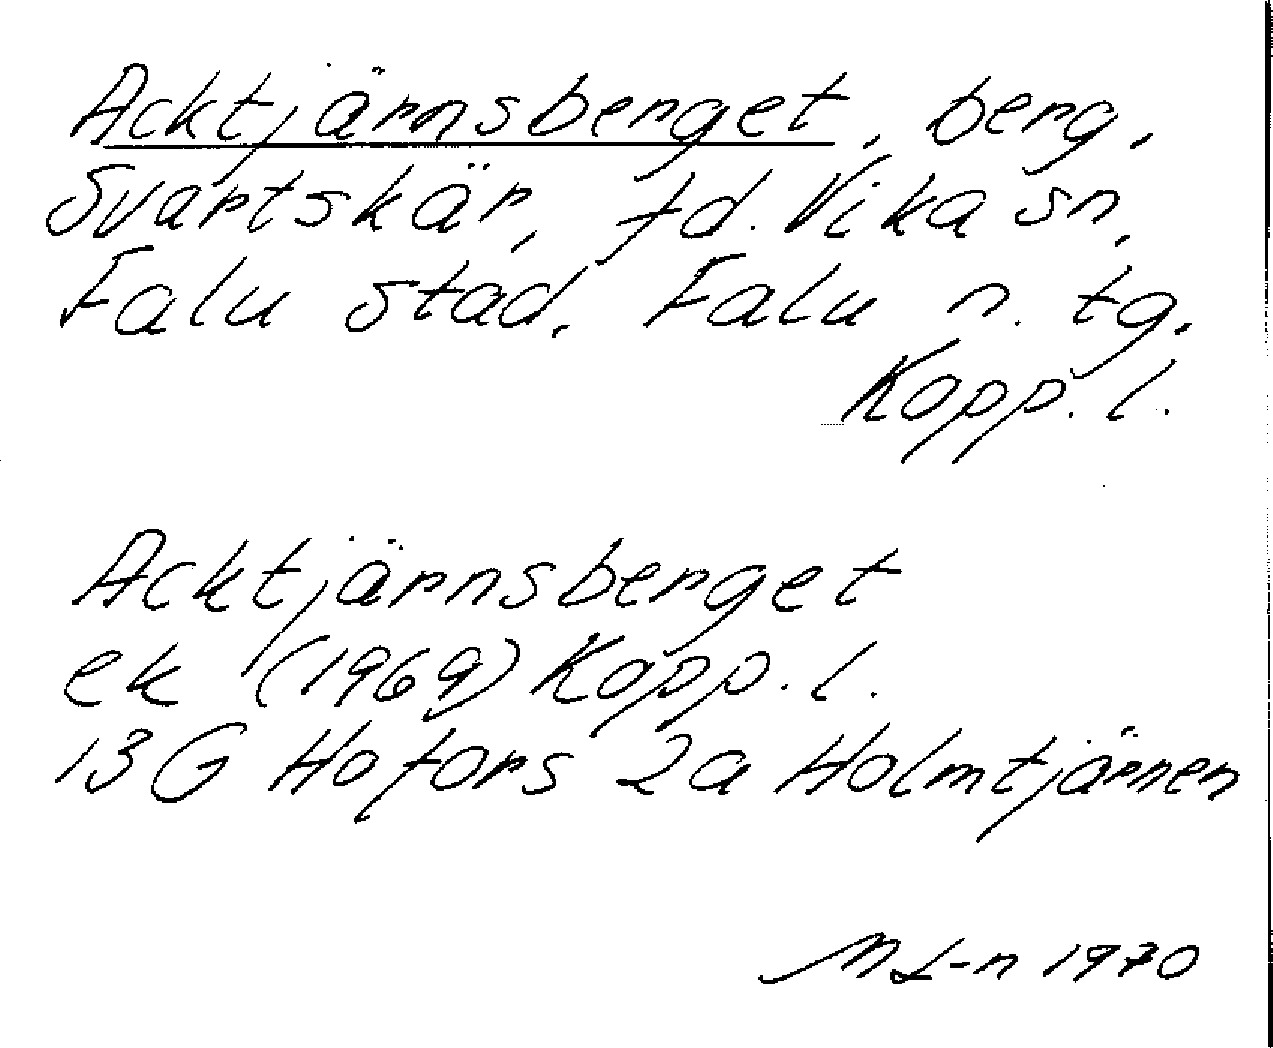 Acktjärnsberget, berg,
Svartskär, fd. Vika sn,
Falu stad, Falu n. tg.
Kopp. l.
Acktjärnsberget
ek (1969) Kopp. l.
13G Hofors 2a Holmtjärnen
M L-n 1970